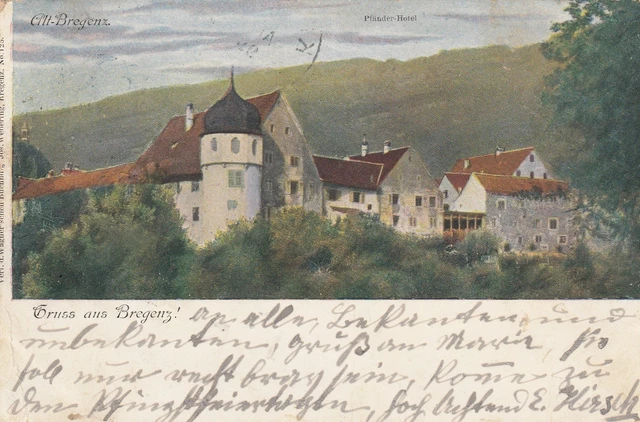 Alt-Bregenz.
Pfänder-Hotel
Gruss aus Bregenz! an alle, Bekanten, und
unbekanten, gruß an Marie, sie
soll nur recht brav sein, komme zu
den Pfingstfeiertagen, hoch Achtend E. Hirsch